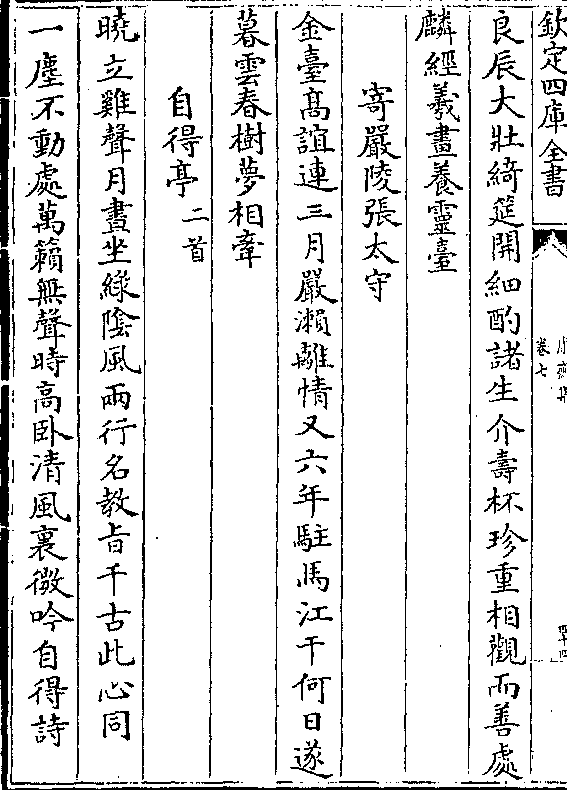 欽定四庫全書
卷七
良辰大壯綺筵開細酌諸生介壽杯珍重相觀而善處
麟經羲畫養靈臺
寄嚴陵張太守
金臺髙誼連三月嚴瀨離情又六年駐馬江干何日遂
暮雲春樹夢相牽
自得亭二首
曉立雞聲月晝坐綠陰風兩行名教旨千古此心同
一塵不動處萬籟無聲時高卧清風裏微吟自得詩